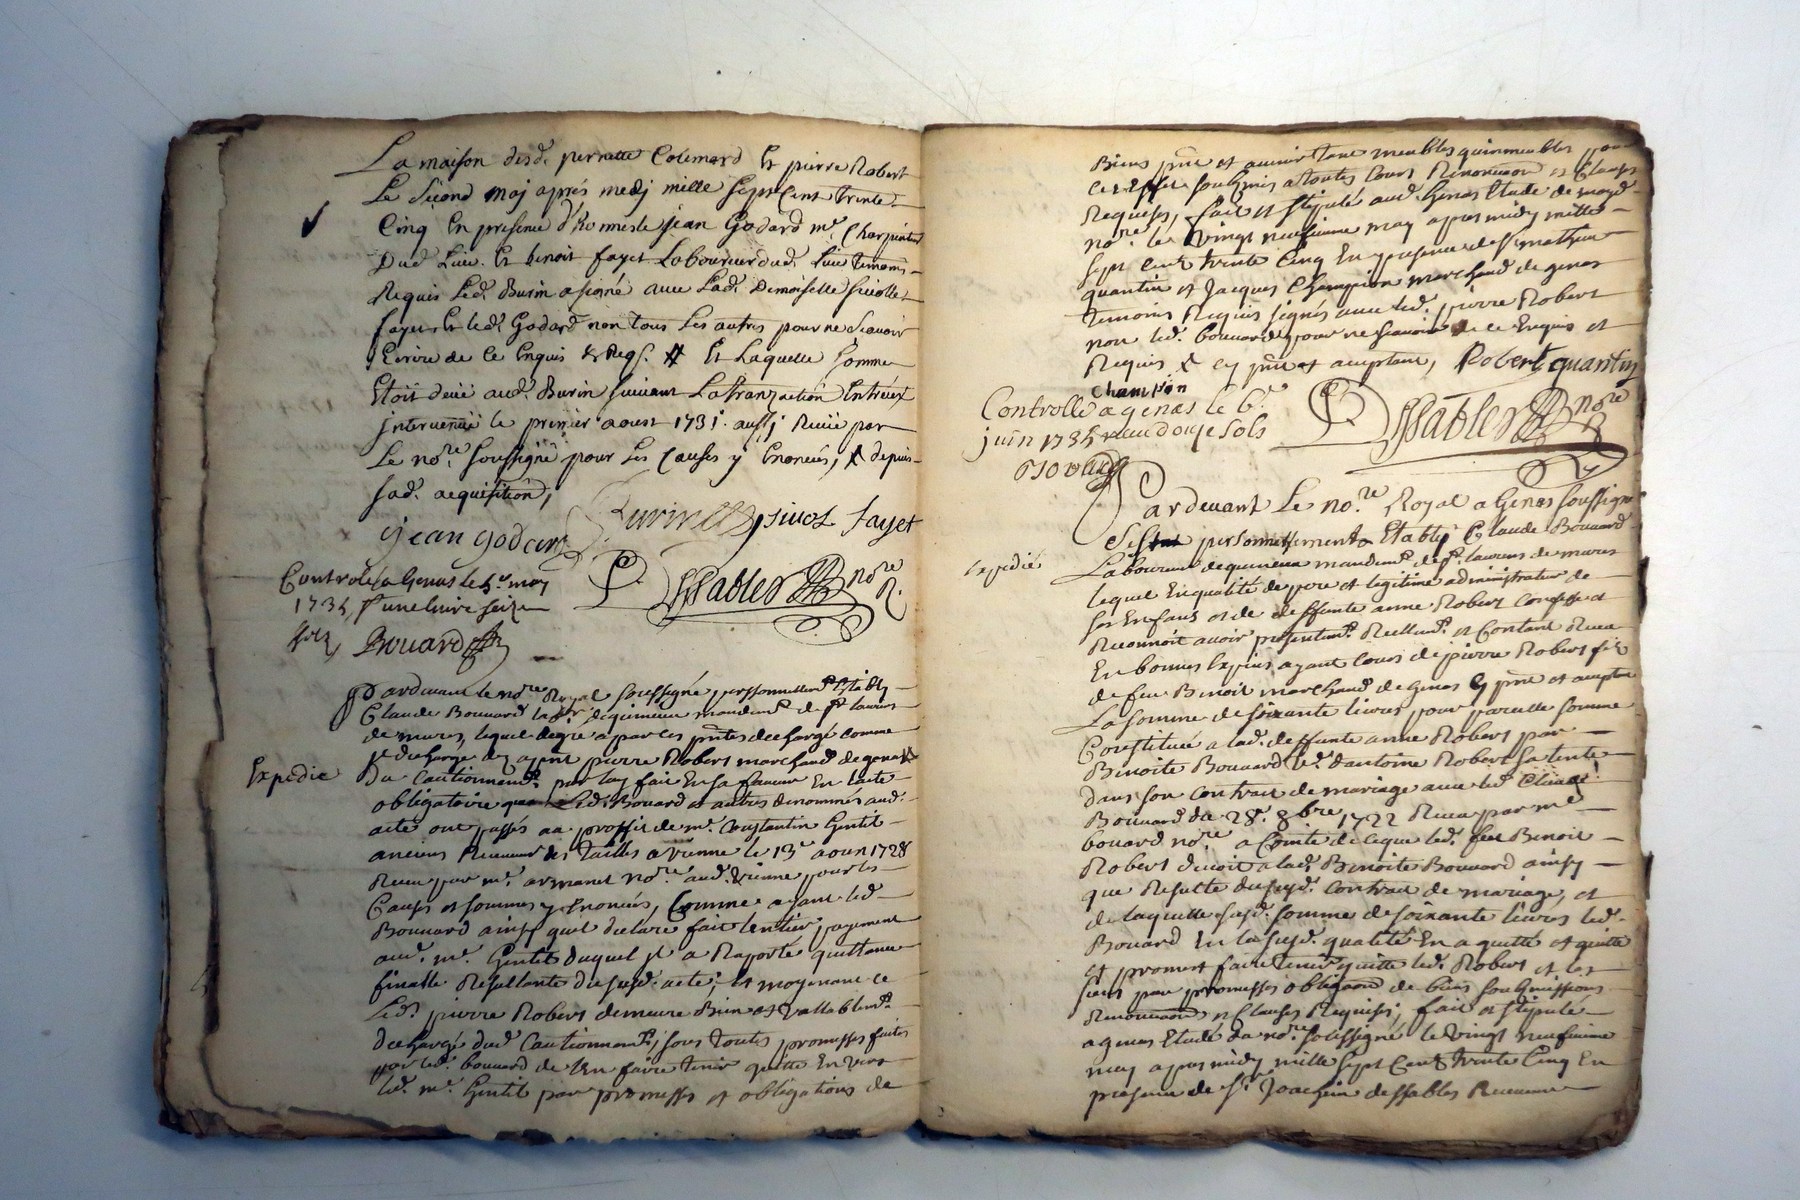 La maison desd. pernette Colemard Et pierre Robert
Le Second maj aprés medj mille Sept Cent trente
Cinq En presence d'honneste jean Godard mr. Charpentier
Dud. Lieu Et benoit fayet Laboureur dud. Lieu temoins
Requis Led. Burin a signé avec Lad. Demoiselle
fayet Et led. Godard non tous Les autres pour ne Scavoir
Ecrire de Ce Enquis & Reqs. Et Laquelle Somme
Etoit deüe aud. Burin suivant La tranzaction Entreux
intervenüe le premier aoust 1731. aussj Reçüe par
Le nore. soussigné pour Les Causes y Enoncés, depuis
lad. acquisition,
jean godard fayet
Controlé a Genas le 5e. may DesSables nore
1735, une livre seize R.
sols, Bouard
Pardevant le nore Royal soussigné personnellemt. Etably
Claude Bouvard labr. de quineux mandemt. de st laurens
de mures, lequel degre a par ces pntes dechargé comme
il decharge pierre Robert marchand de genas
Expedié
Du Cautionnemt. par luy fait En sa faveur En lacte
obligatoire que Led. Bouard et autres denommés aud.
acte ont passés au proffit de mr. Constantin Gentil
anciens Receveur des tailles a vienne le 13e aoust 1728
Receu par mr. armanet nore. aud. vienne pour les
Causes et sommes y Enoncés, Comme ayant led.
Bouvard ainsy quil declare fait lentier payement
aud. mr. Gentil duquel il a Raporté quittance
finalle Resultante du susd. acte, et moyenant ce
Led. pierre Robert demeure Bien et vallablemt.
dechargé dud. Cautionnemt., sous toutes promesses faites
par led. bouvard de len faire tenir quitte Envers
led. mr. Gentil par promesses et obligations de
Biens pnt et avenir tant meubles quimmeubles pour
cet Effet soubmis a toutes Cours Renonciaon et Clauses
Requises, fait et stipulé aud. Genas Etude de moyd.
nore. le vingt neufvieme may apres midy mille
sept Cent trente Cinq En presence de sr. mathieu
quantin et Jacques Champion marchand de genas
temoins Requis signés avec led. pierre Robert
non led. bouvard pour ne scavoir de ce Enquis et
Requis cy pnt et aceptant, Robert quantin
Champion
Controllé a genas le 6e. DesSables nore
juin 1735 receu douze sols
Bouard
Pardevant Le nore. Royal a Genas soussigné
personnellement Etably Claude Bouvard
Expedié
Laboureur de quineux mandemt. de st. laurens de mures
lequel En qualité de pere et legitime administrateur de
ses Enfans et de deffunte anne Robert Confesse et
Reconnoit avoir presentemt. Reellemt. et Contant Receu
En bonnes Espéces ayant Cours de pierre Robert fils
de feu Benoit marchand de Genas cy pnt et aceptant
La somme de soixante livres pour pareille somme
Constituée a lad. deffunte anne Robert par
Benoite Bouvard ve. dantoine Robert sa tante
dans son contrat de mariage avec led. Claude
Bouvard du 28e. 8bre 1722 Receu par me
bouard nore. a Comte de ceque led. feu Benoit
Robert devoit a lad. Benoite Bouvard ainsy
que Resulte dususd. contrat de mariage, et
de laquelle susd. somme de soixante livres led.
Bouard En la susd. qualité En a quitté et quitte
et promest faire tenir quitte led. Robert et les
siens par promesses obligaon de biens soubmissions
Renonciaons et Clauses Requises, fait et stipulé
a genas Etude du nore. soussigné le vingt neufvieme
may apres midy mille sept Cent trente Cinq En
presence de sr. Joachim dessables Receveur